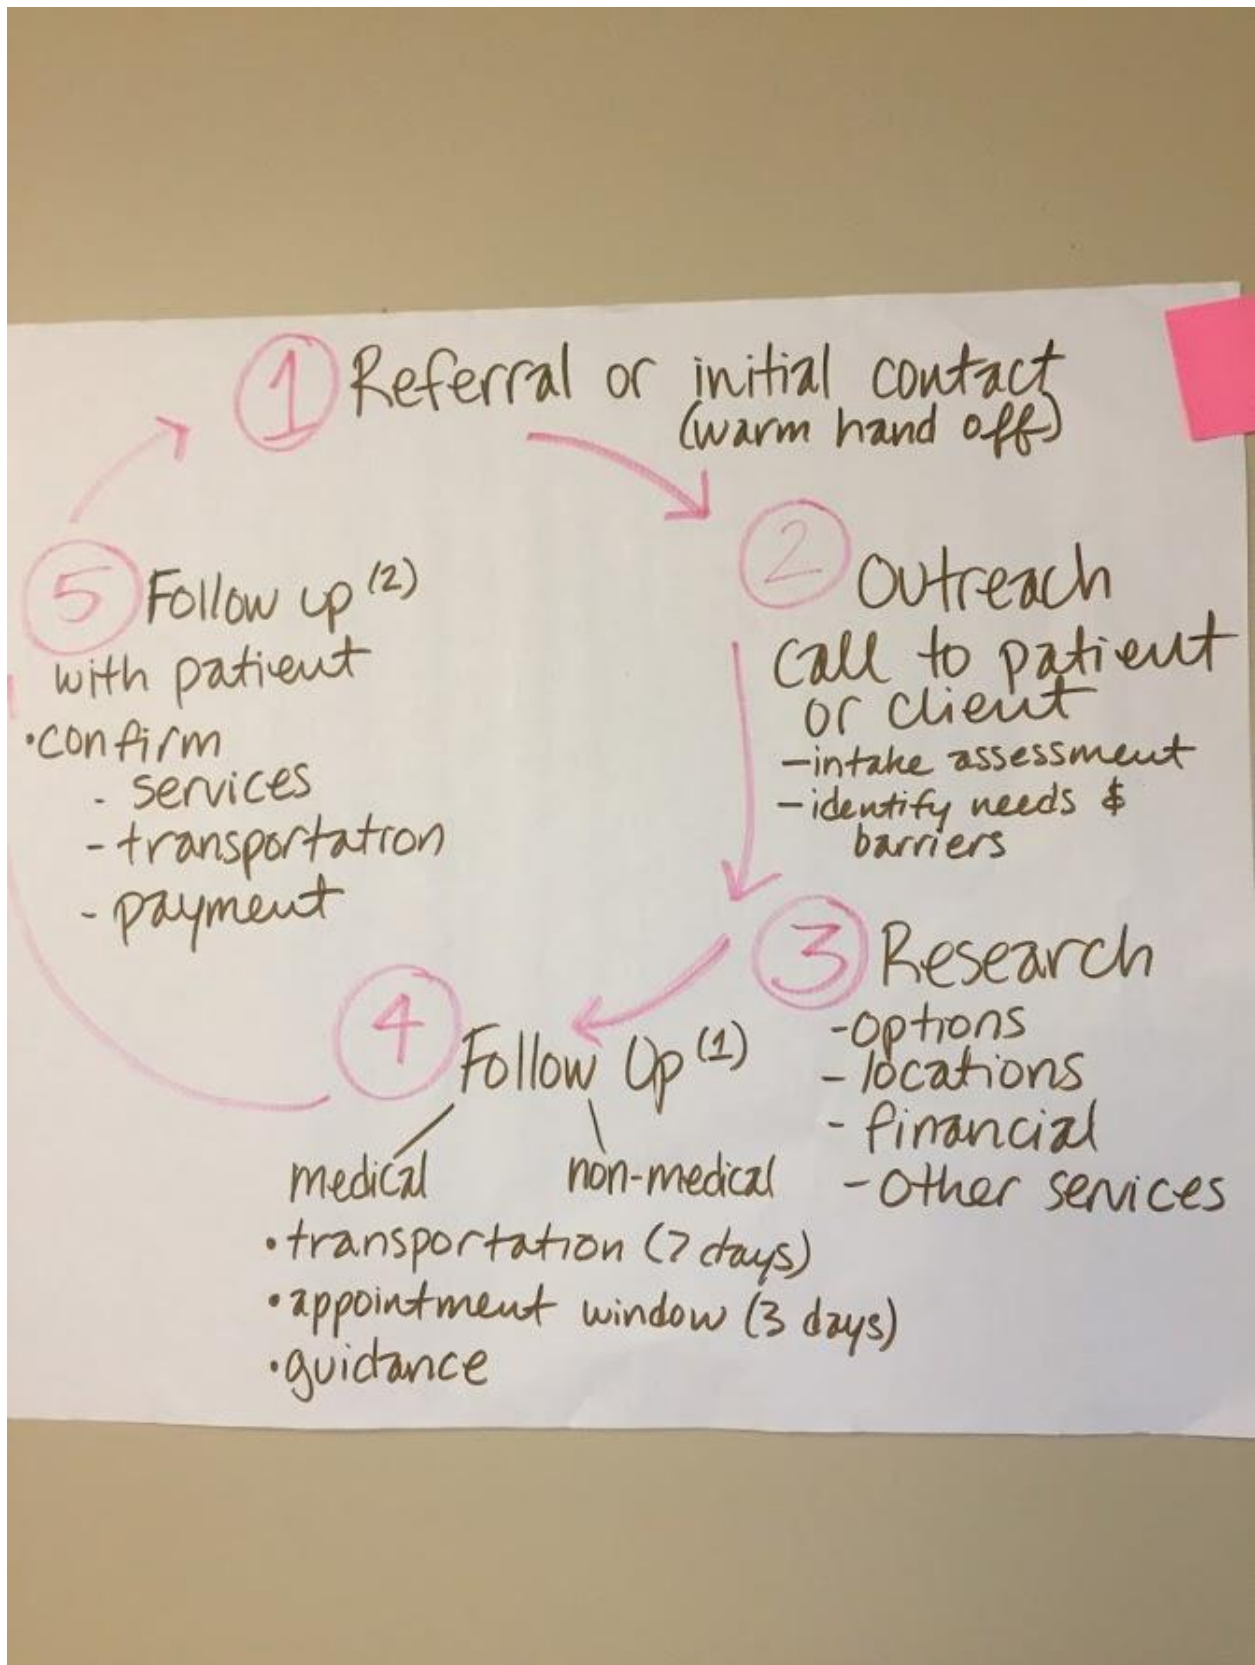 1 Referral or initial contact
(warm hand off)
2 Outreach
call to patient
or client
-intake assessment
-identify needs &
barriers
3 Research
-options
-locations
- financial
-Other services
4 Follow Up (1)
medical non-medical
•transportation (7 days)
•appointment window (3 days)
•guidance
5 Follow up (2)
with patient
•confirm
- services
-transportation
- payment